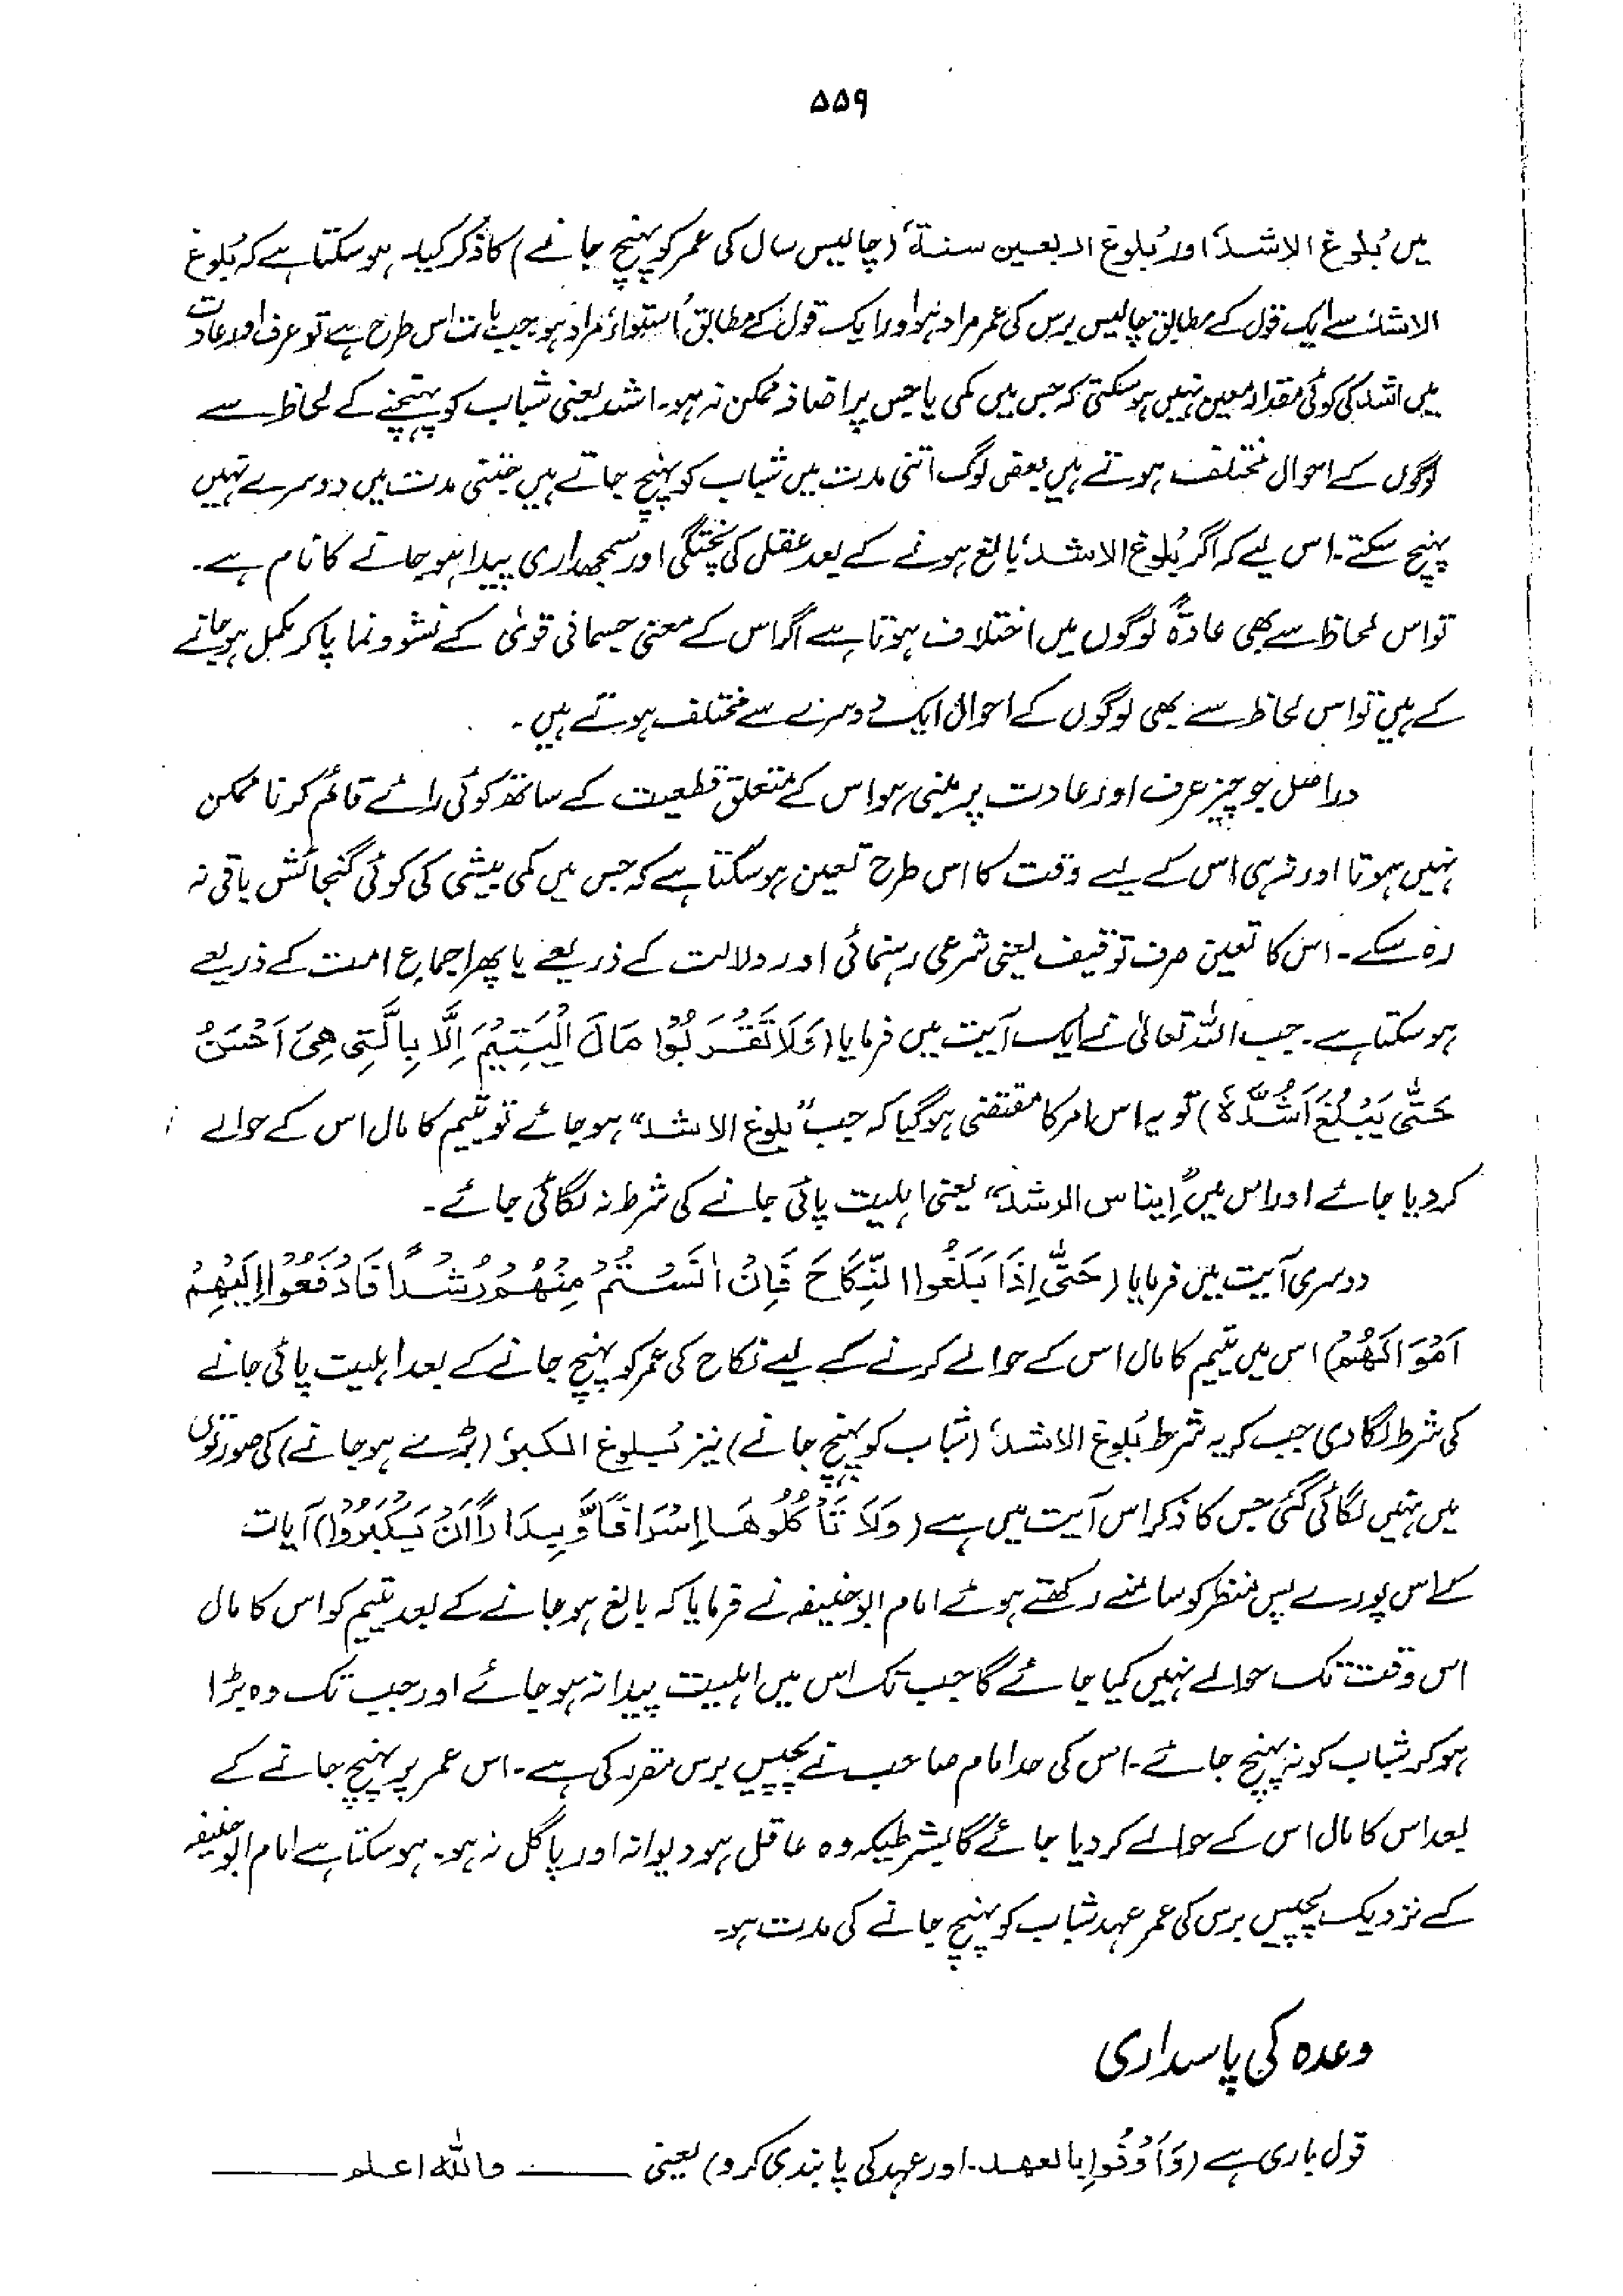 ۵۵۹
میں بُلوغ الاشدّ' اور 'بُلوغ اربعین سنۃ' (چالیس سال کی عمر کو پہنچ جانے) کا ذکر کیا۔ ہو سکتا ہے کہ 'بُلوغ
الاشد' سے ایک قول کے مطابق چالیس برس کی عمر مراد ہو اور ایک قول کے مطابق 'استواء' مراد ہو۔ جب بات اس طرح ہے تو عرف اور عادت
میں اشد کی کوئی مقدار معین نہیں ہو سکتی کہ جس میں کمی یا جس پر اضافہ ممکن نہ ہو۔ اشد یعنی شباب کو پہنچنے کے لحاظ سے
لوگوں کے احوال مختلف ہوتے ہیں بعض لوگ اتنی مدت میں شباب کو پہنچ جاتے ہیں جتنی مدت میں دوسرے نہیں
پہنچ سکتے۔ اس لیے کہ اگر 'بُلوغ الاشد' بالغ ہونے کے بعد عقل کی پختگی اور سمجھداری پیدا ہو جانے کا نام ہے۔
تو اس لحاظ سے بھی عادۃً لوگوں میں اختلاف ہوتا ہے اگر اس کے معنی جسمانی قویٰ کے نشوونما پا کر مکمل ہو جانے
کے ہیں تو اس لحاظ سے بھی لوگوں کے احوال ایک دوسرے سے مختلف ہوتے ہیں۔
دراصل جو چیز عرف اور عادت پر مبنی ہو اس کے متعلق قطعیت کے ساتھ کوئی رائے قائم کرنا ممکن
نہیں ہوتا اور نہ ہی اس کے لیے وقت کا اس طرح تعین ہو سکتا ہے کہ جس میں کمی بیشی کی کوئی گنجائش باقی نہ
رہ سکے۔ اس کا تعین صرف توقیف یعنی شرعی رہنمائی اور دلالت کے ذریعے یا پھر اجماعِ امت کے ذریعے
ہو سکتا ہے۔ جب اللہ تعالیٰ نے ایک آیت میں فرمایا (وَلَا تَقْرَبُوْا مَالَ الْيَتِيْمِ اِلَّا بِالَّتِيْ هِيَ اَحْسَنُ
حَتّٰى يَبْلُغَ اَشُدَّهٗ) تو یہ اس امر کا مقتضی ہو گیا کہ جب "بلوغ الاشد" ہو جائے تو یتیم کا مال اس کے حوالے
کر دیا جائے اور اس میں "اِیناس الرشد" یعنی اہلیت پائی جانے کی شرط نہ لگائی جائے۔
دوسری آیت میں فرمایا (حَتّٰى اِذَا بَلَغُوا النِّكَاحَ فَاِنْ اٰنَسْتُمْ مِنْهُمْ رُشْدًا فَادْفَعُوْا اِلَيْهِمْ
اَمْوَالَهُمْ) اس میں یتیم کا مال اس کے حوالے کرنے کے لیے نکاح کی عمر کو پہنچ جانے کے بعد اہلیت پائی جانے
کی شرط لگا دی جب کہ یہ شرط 'بُلوغ الاشد' (شباب کو پہنچ جانے) نیز 'بُلوغ الکبر' (بڑے ہو جانے) کی صورتوں
میں نہیں لگائی گئی جس کا ذکر اس آیت میں ہے (وَلَا تَأْكُلُوْهَا اِسْرَافًا وَّبِدَارًا اَنْ يَكْبَرُوْا) آیات
کے اس پورے پس منظر کو سامنے رکھتے ہوئے امام ابو حنیفہ نے فرمایا کہ بالغ ہو جانے کے بعد یتیم کو اس کا مال
اس وقت تک حوالے نہیں کیا جائے گا جب تک اس میں اہلیت پیدا نہ ہو جائے اور جب تک وہ بڑا
ہو کر شباب کو نہ پہنچ جائے۔ اس کی حد امام صاحب نے پچیس برس مقرر کی ہے۔ اس عمر پر پہنچ جانے کے
بعد اس کا مال اس کے حوالے کر دیا جائے گا بشرطیکہ وہ عاقل ہو دیوانہ اور پاگل نہ ہو۔ ہو سکتا ہے امام ابو حنیفہ
کے نزدیک پچیس برس کی عمر عہد شباب کو پہنچ جانے کی مدت ہو۔
وعدہ کی پاسداری
قول باری ہے (وَاَوْفُوا بالعهد۔ اور عہد کی پابندی کرو) یعنی ـــــــ واللہ اعلم ـــــــ